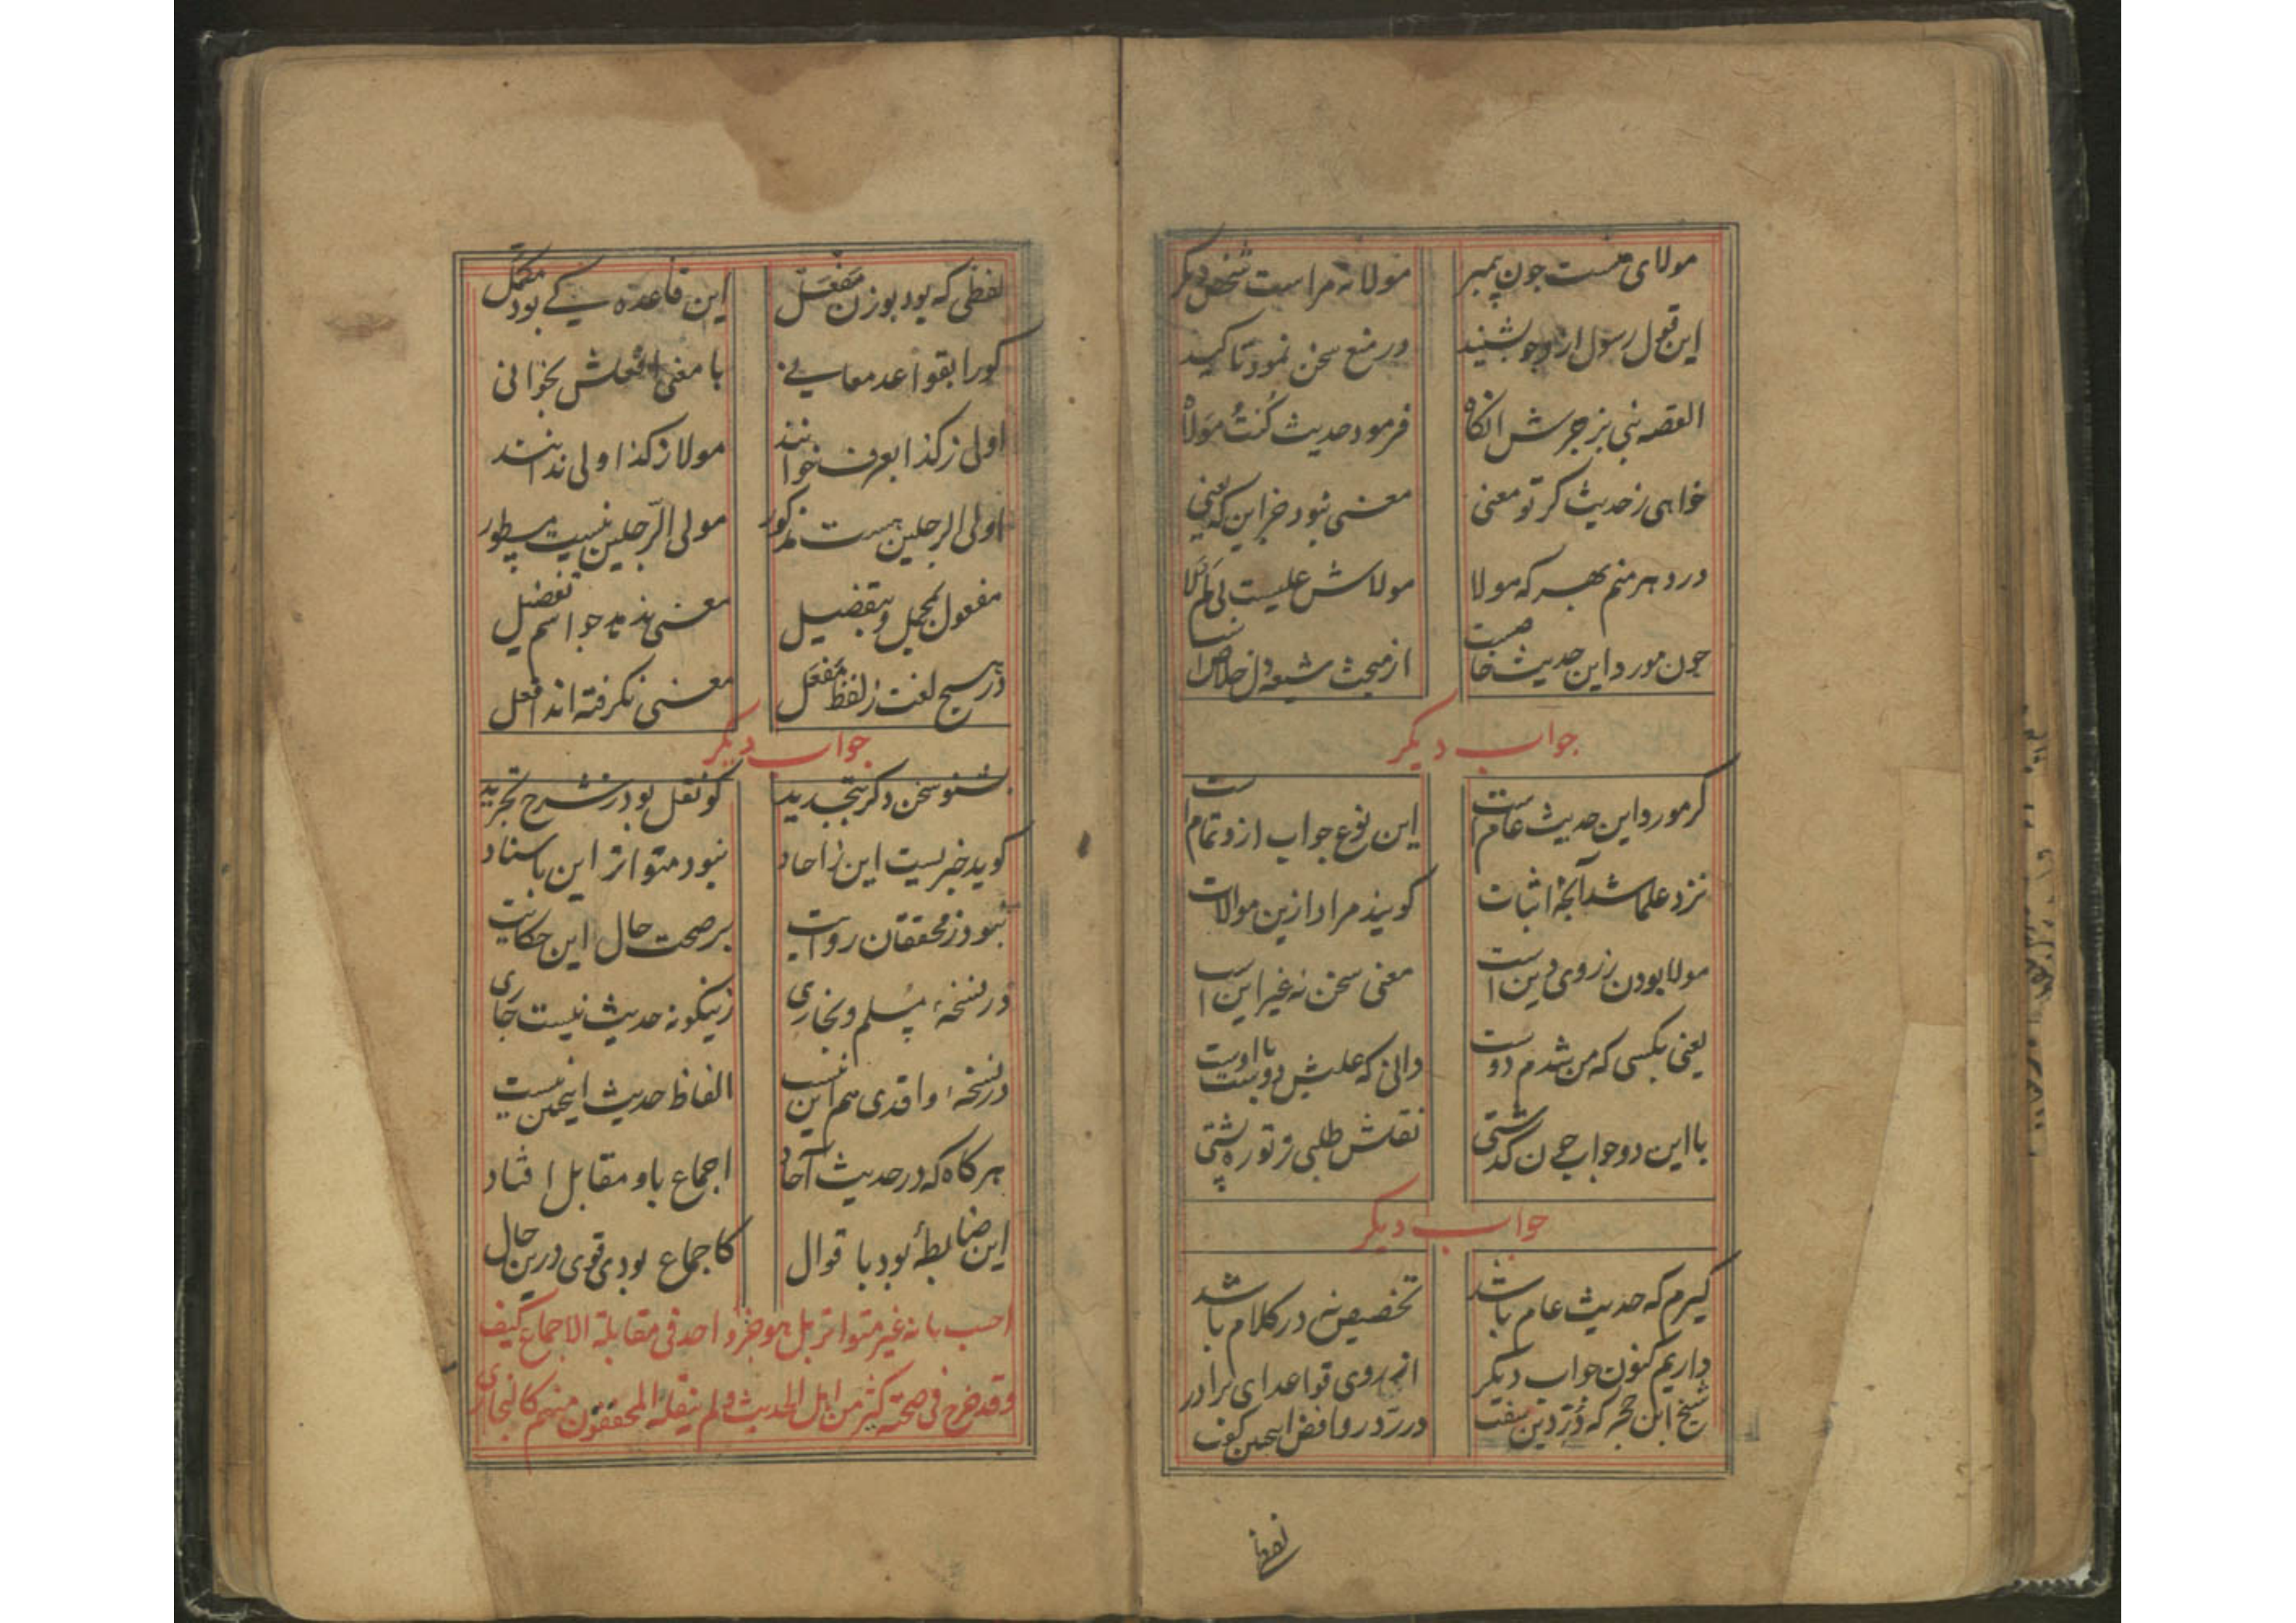 مولای منست جون پیمبر مولا نه مراست شخص دیکر
این قول رسول ازو جو بشنید در منع سخن نمود تاکید
القصه نبی بزجرش انکاه فرمود حدیث کُنتُ مَولاهُ
خواهی ز حدیث کر تو معنی معنی نبود جز این که یعنی
در دهر منم بهر که مولا مولاش علیست بی کم لا
جون مورد این حدیث خاصست از مبحث شیعه دل خلاصست
جواب دیکر
کر مورد این حدیث عام است این نوع جواب ازو تمام است
نزد علما شد آنجه اثبات کویند مراد ازین موالات
مولا بودن ز روی دین است معنی سخن نه غیر این است
یعنی بکسی که من شدم دوست دانی که علیش دوست با اوست
با این دو جواب جون کذشتی نقلش طلبی ز توره پشتی
جواب دیکر
کیرم که حدیث عام باشد تخصیص نه در کلام باشد
داریم کنون جواب دیکر از روی قواعد ای برادر
شیخ ابن حجر که دُرّ دین سفت در ردّ روافض اینجنین کفت
لفظی
لفظی که بود بوزن مَفْعَل این قاعده کے بود مکمّل
کورا بقواعد معانے با معنی افعلش بخوانی
اولی ز کذا بعرف خوانند مولا ز کذا اولی ندانند
اولی الرجلین هست مذکور مولی الرّجلین نیست مسطور
مفعول بمجمل و بتفضیل معنی ندهد جو اسم تفضیل
در هیج لغت ز لفظ مَفْعَل معنی نکرفته اند افعل
جواب دیکر
بشنو سخن دکر بتجدید کو نقل بود ز شرح تجرید
کوید خبریست این ز احاد نبود متواتر این باسناد
نبود ز محققان روایت بر صحت حال این حکایت
در نسخهٔ مسلم و بخاری زینکونه حدیث نیست جاری
در نسخهٔ واقدی هم این نیست الفاظ حدیث اینجنین نیست
هرکاه که در حدیث آحاد اجماع باو مقابل افتاد
این ضابطهٔ بود با قوال کاجماع بودی قوی درین حال
احیب بانه غیر متواتر بل هو خبر واحد فی مقابلة الاجماع کیف
وقد خرج فی صحته کثیر من اهل الحدیث ولم ینقله المحققون منهم کالبخاری